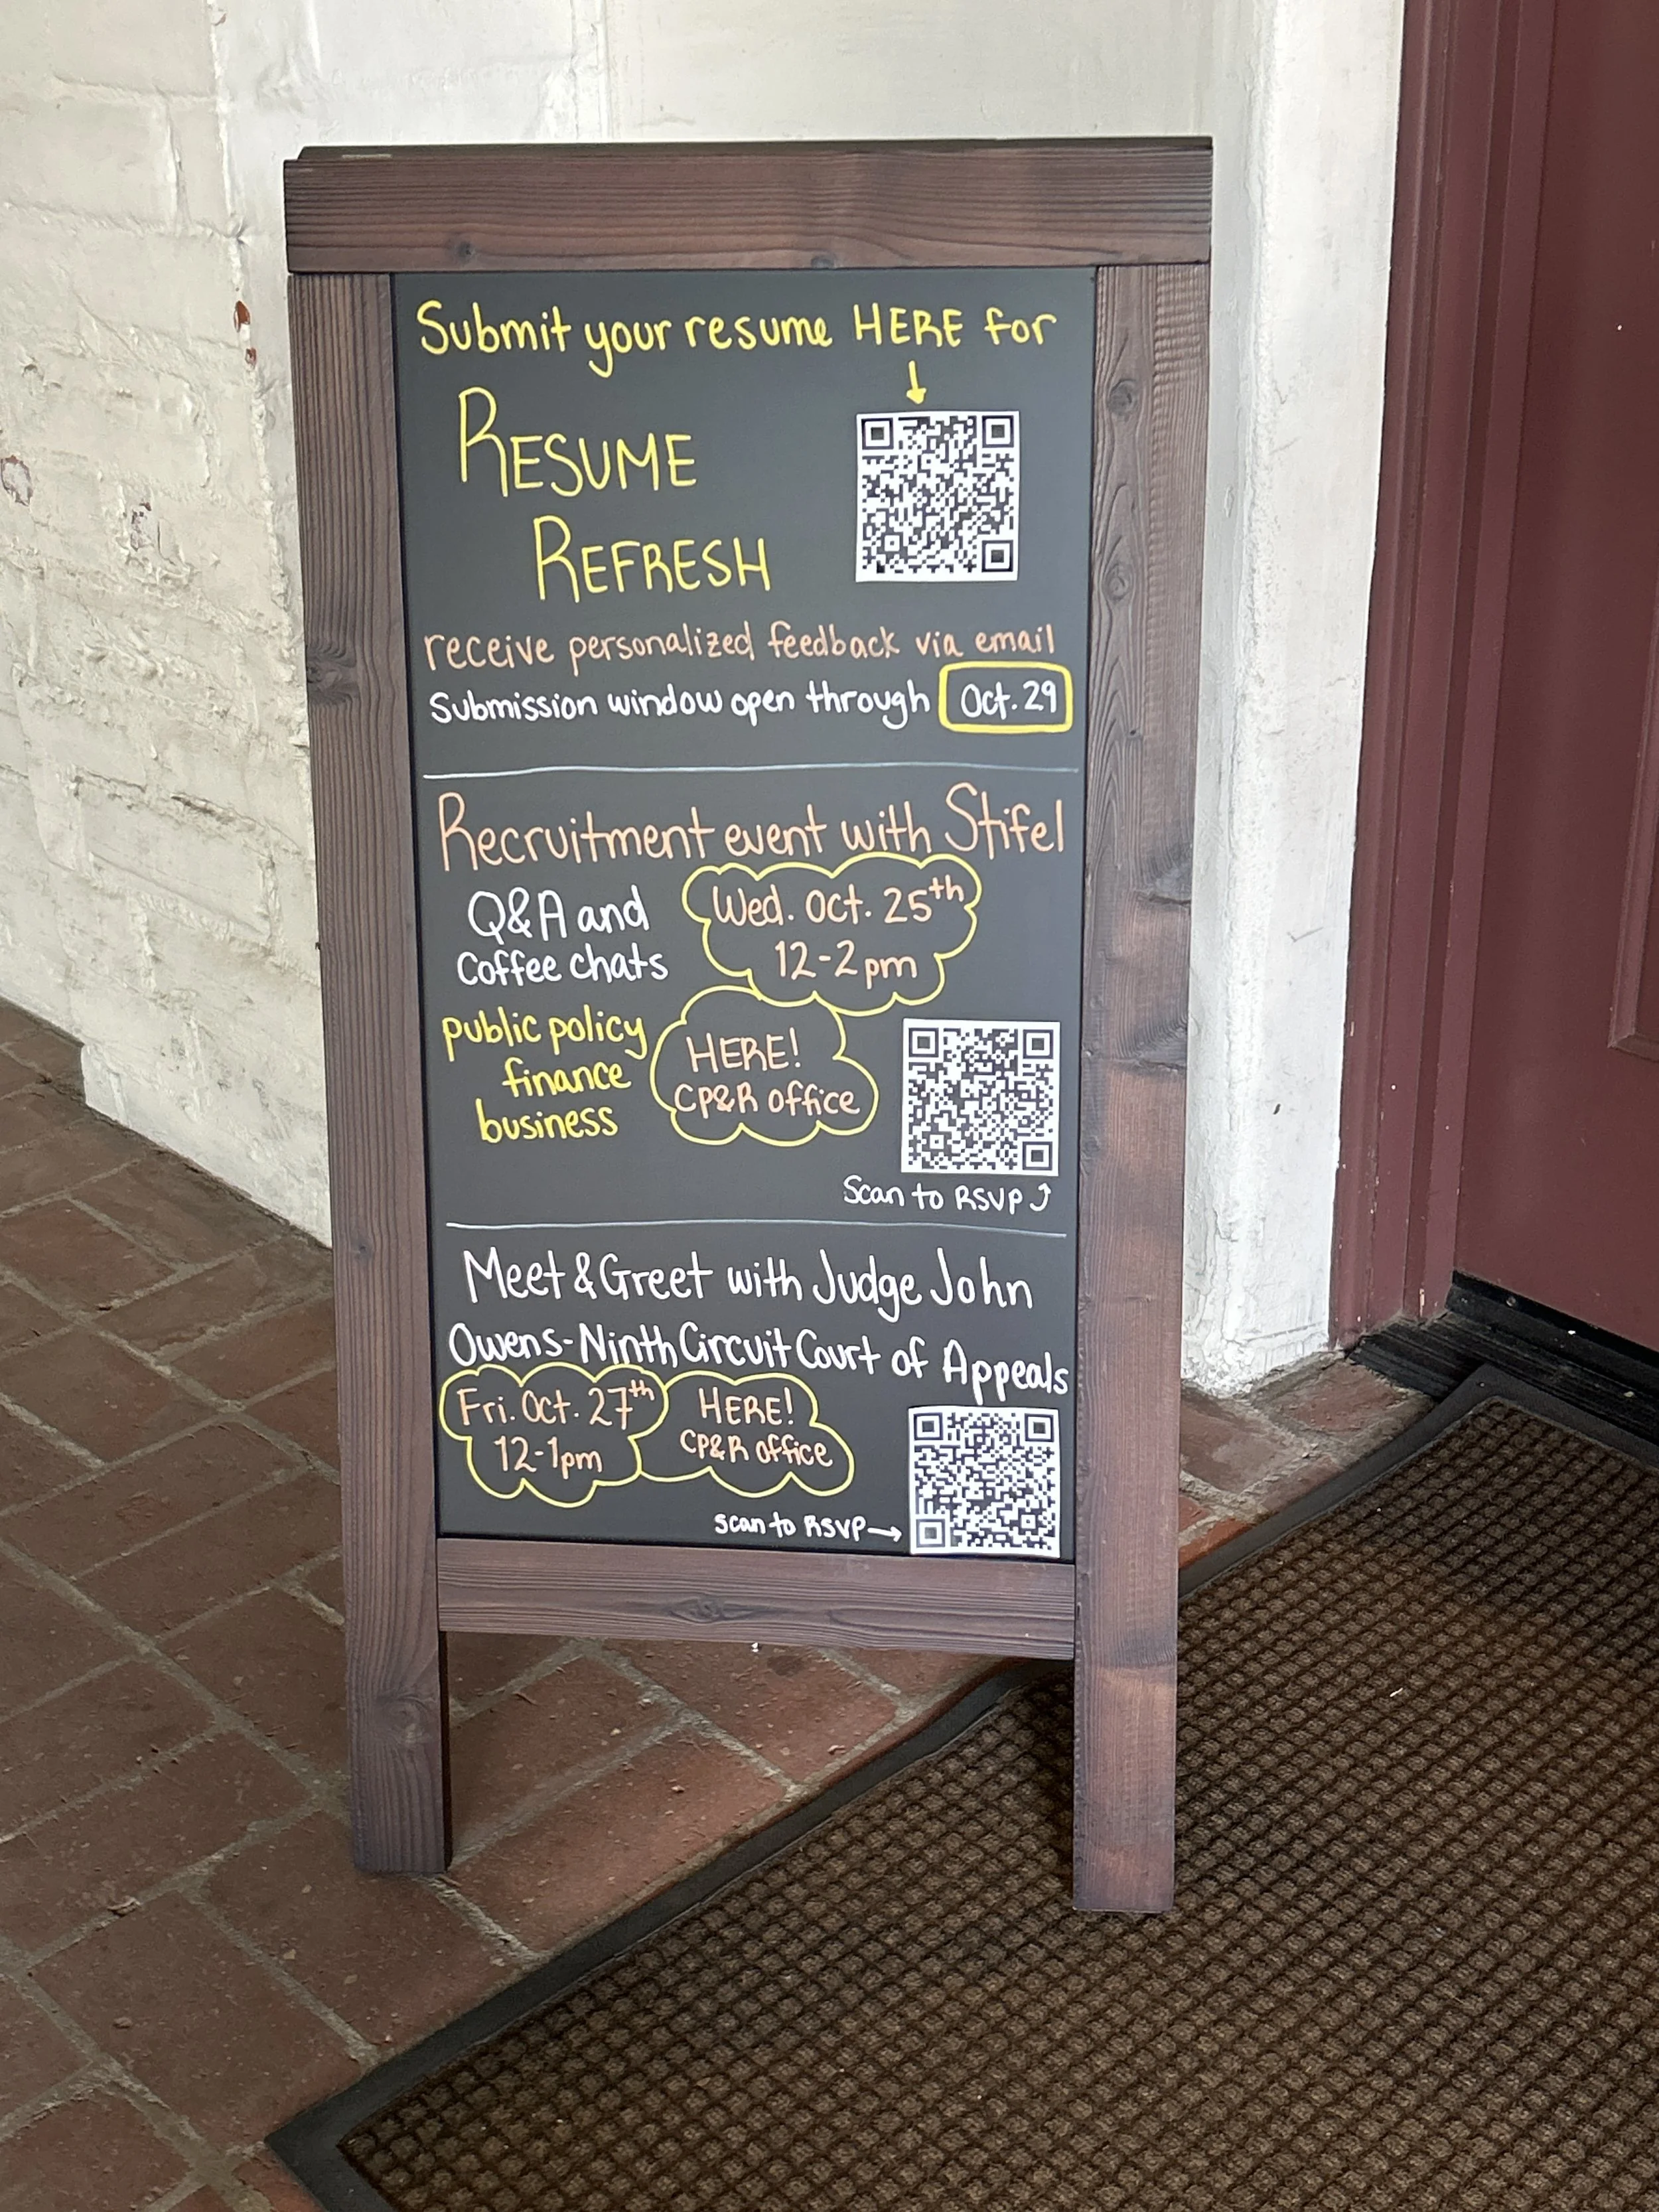 Submit your resume HERE for
RESUME
REFRESH
receive personalized feedback via email
Submission window open through Oct. 29
Recruitment event with Stifel
Q&A and
Coffee chats
Wed. Oct. 25th
12-2pm
public policy
finance
business
HERE!
CP&R office
Scan to RSVP
Meet & Greet with Judge John
Owens-Ninth Circuit Court of Appeals
Fri. Oct. 27th
12-1pm
HERE!
CP&R office
scan to RSVP